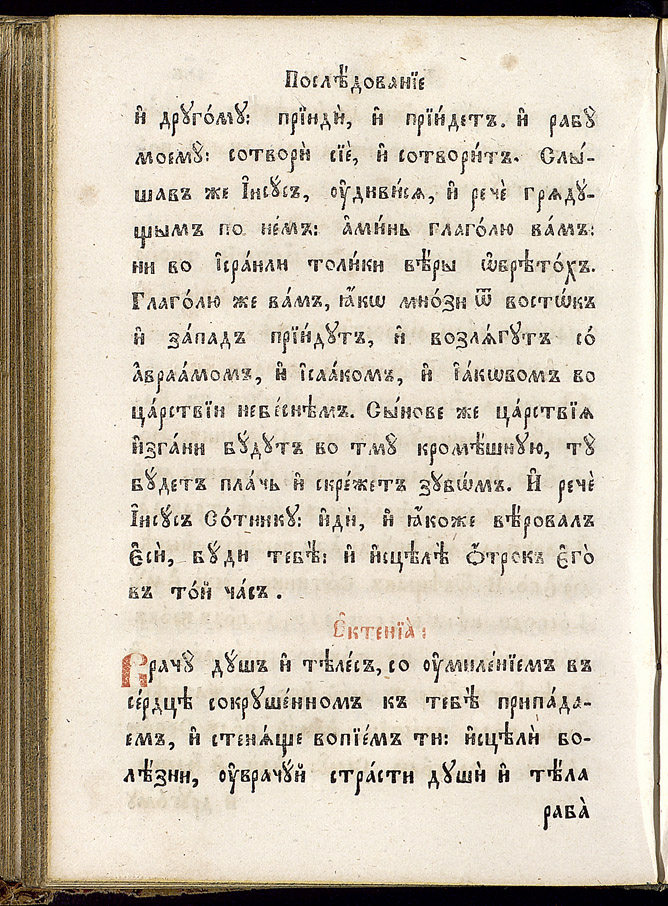 Послѣ́дованїе
и҆ дрꙋго́мꙋ: прїидѝ, и҆ прїи́детъ. и҆ рабꙋ̀
моемꙋ̀: сотворѝ сїѐ, и҆ сотвори́тъ. Слы́-
шавъ же І҆исꙋ́съ, ᲂу҆диви́ся, и҆ речѐ грядꙋ́-
щымъ по не́мъ: а҆ми́нь глаго́лю ва́мъ:
ни во і҆сра́или толи́ки вѣ́ры ѡ҆брѣто́хъ.
Глаго́лю же ва́мъ, ꙗ҆́кѡ мно́зи ѿ восто́къ
и҆ за́падъ прїи́дꙋтъ, и҆ возля́гꙋтъ со́
а҆враа́момъ, и҆ і҆саа́комъ, и҆ і҆а́кѡвомъ во
ца́рствїи небе́снѣмъ. Сы́нове же ца́рствїя
и҆зга́ни бꙋ́дꙋтъ во тмꙋ̀ кромѣ́шнꙋю, тꙋ̀
бꙋ́детъ пла́чь и҆ скре́жетъ зꙋбѡ́мъ. И҆ речѐ
І҆исꙋ́съ Со́тникꙋ: и҆дѝ, и҆ ꙗ҆́коже вѣ́ровалъ
є҆сѝ, бꙋ́ди тебѣ̀: и҆ и҆сцѣлѣ̀ ѻ҆́трокъ є҆гѡ̀
въ то́й ча́съ.
Є҆ктенїа̀:
Врачꙋ̀ дꙋ́шъ и҆ тѣле́съ, со ᲂу҆миле́нїемъ въ
се́рдцѣ сокрꙋше́нномъ къ тебѣ̀ припа́да-
емъ, и҆ стеня́ще вопїе́мъ ти: и҆сцѣлѝ бо-
лѣ́зни, ᲂу҆врачꙋ́й стра́сти дꙋшѝ и҆ тѣ́ла
раба̀